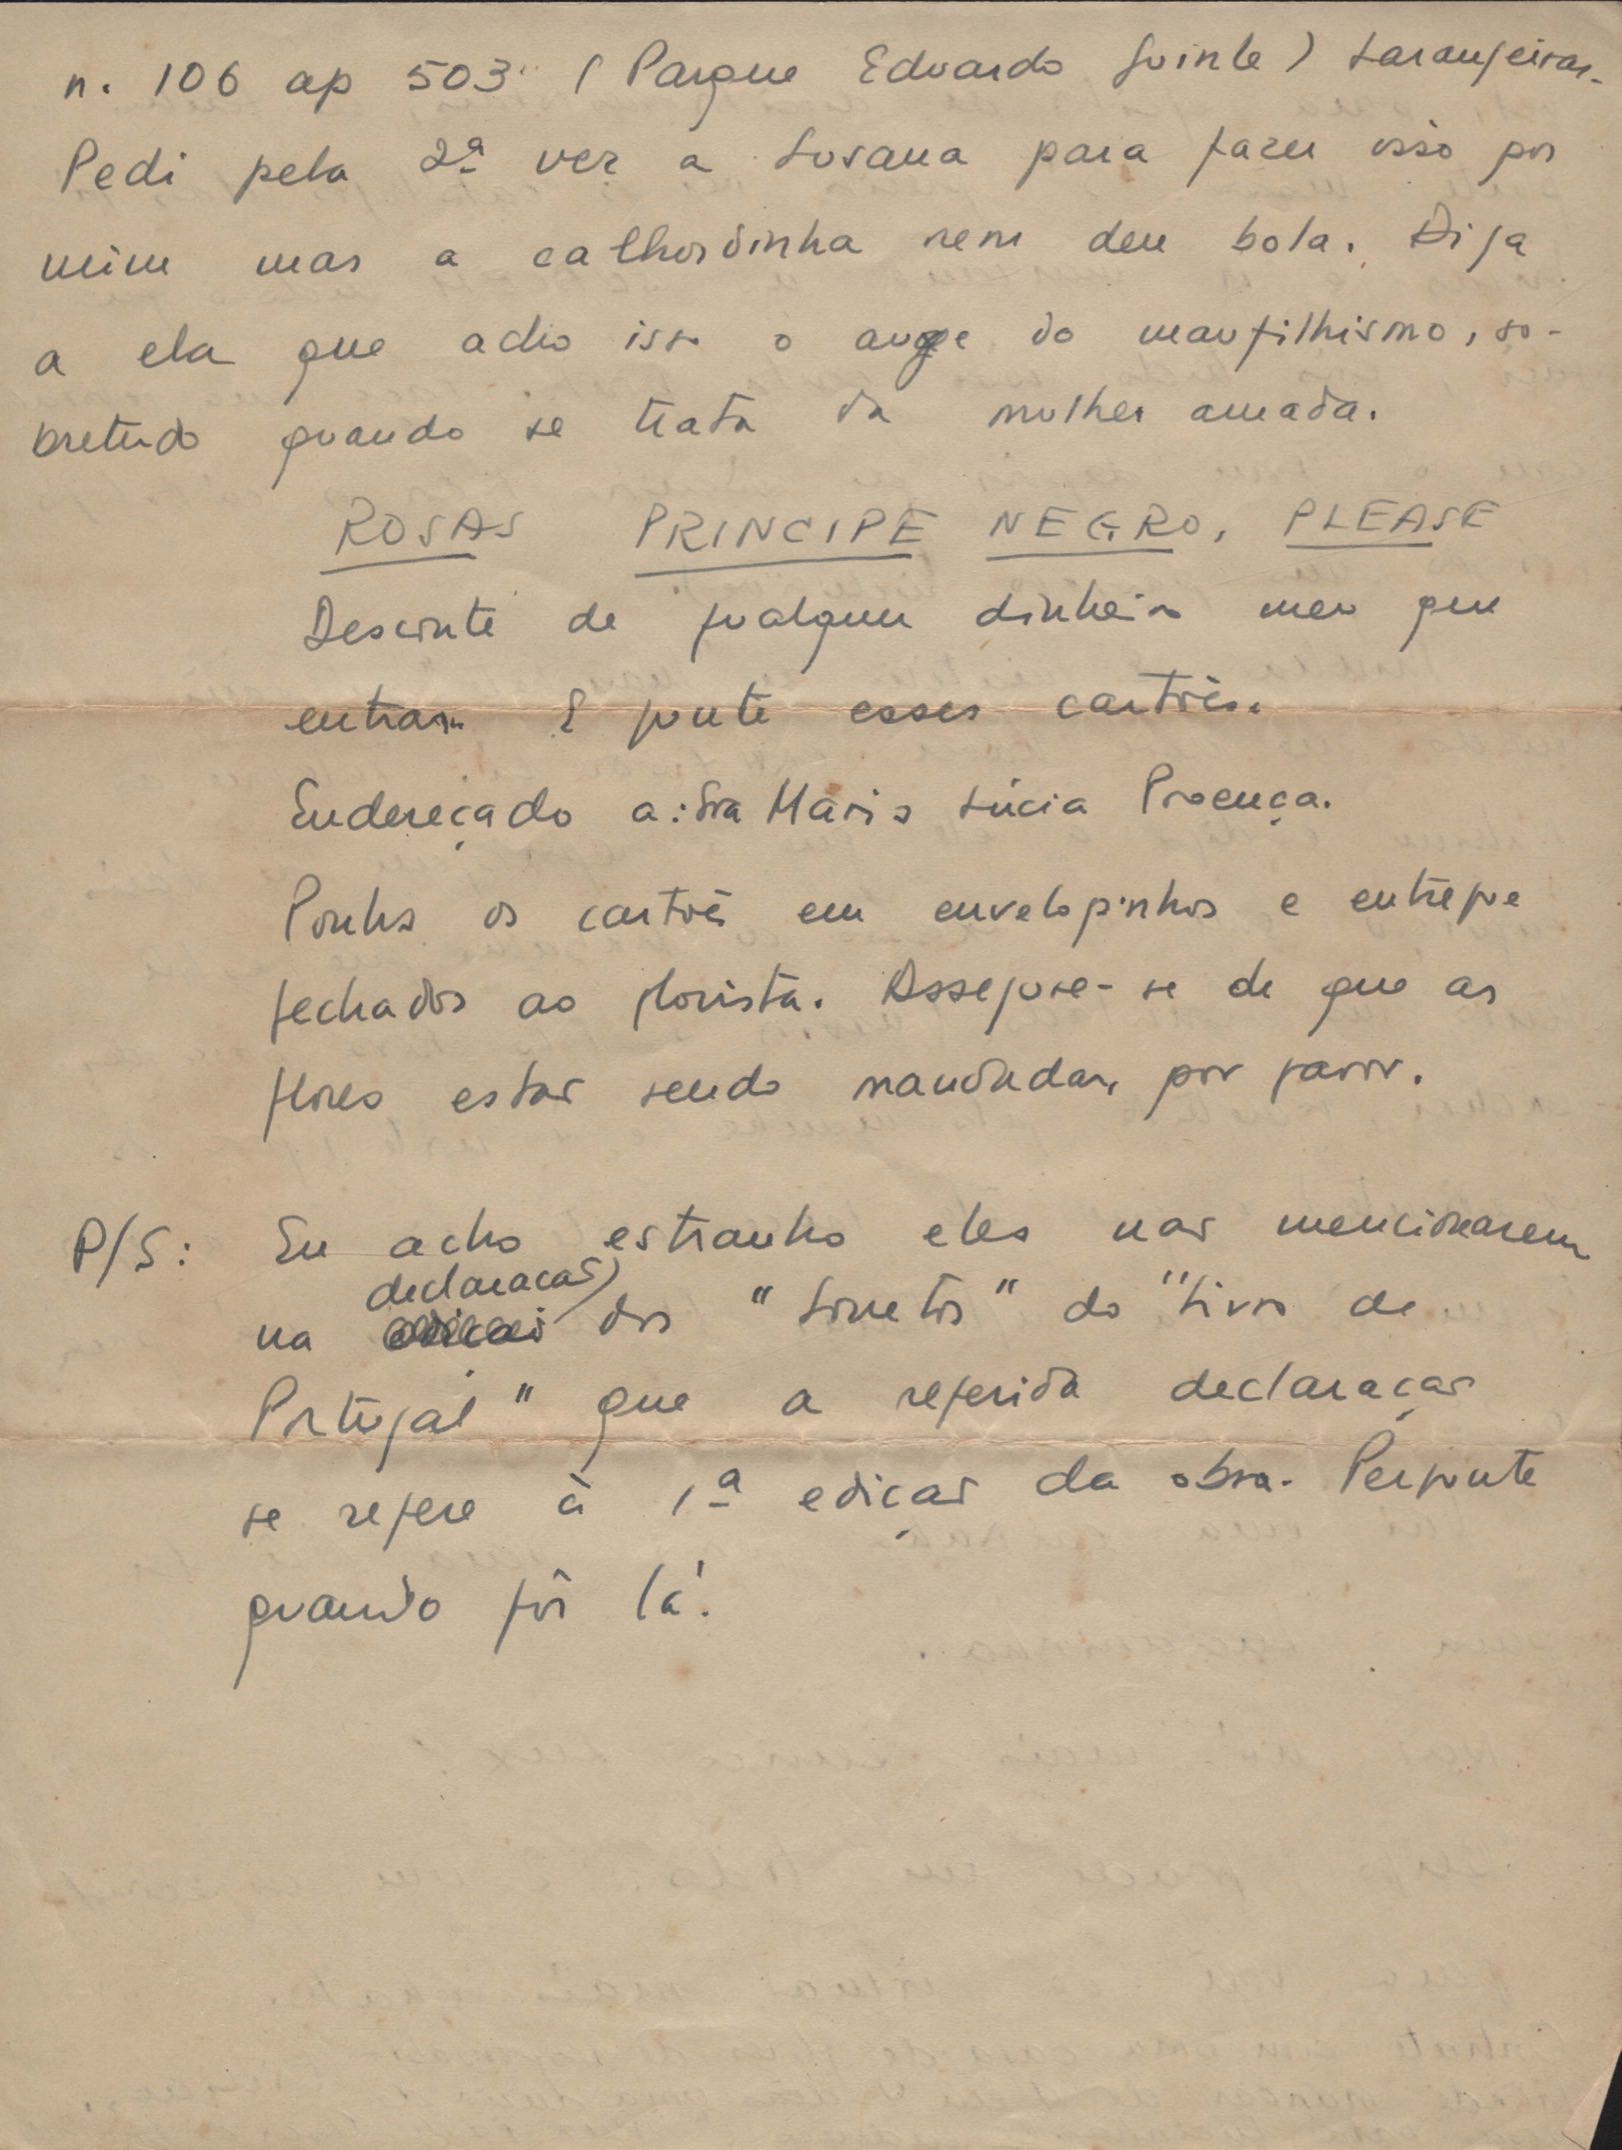 n. 106 ap 503 (Parque Eduardo Guinle) Laranjeiras.
Pedi pela 2ª vez a Susana para fazer isso por
mim mas a calhordinha nem deu bola. Diga
a ela que acho isso o auge do maufilhismo, so-
bretudo quando se trata da mulher amada.
ROSAS PRINCIPE NEGRO, PLEASE
Desconte de qualquer dinheiro meu que
entrar. E junte esses cartões.
Endereçado a: Sra Maria Lúcia Proença.
Ponha os cartões em envelopinhos e entregue
fechados ao florista. Assegure-se de que as
flores estão sendo mandadas, por favor.
P/S: Eu acho estranho eles não mencionarem
na declaração dos "Sonetos" do "Livros de
Portugal" que a referida declaração
se refere à 1ª edição da obra. Pergunte
quando fôr lá.